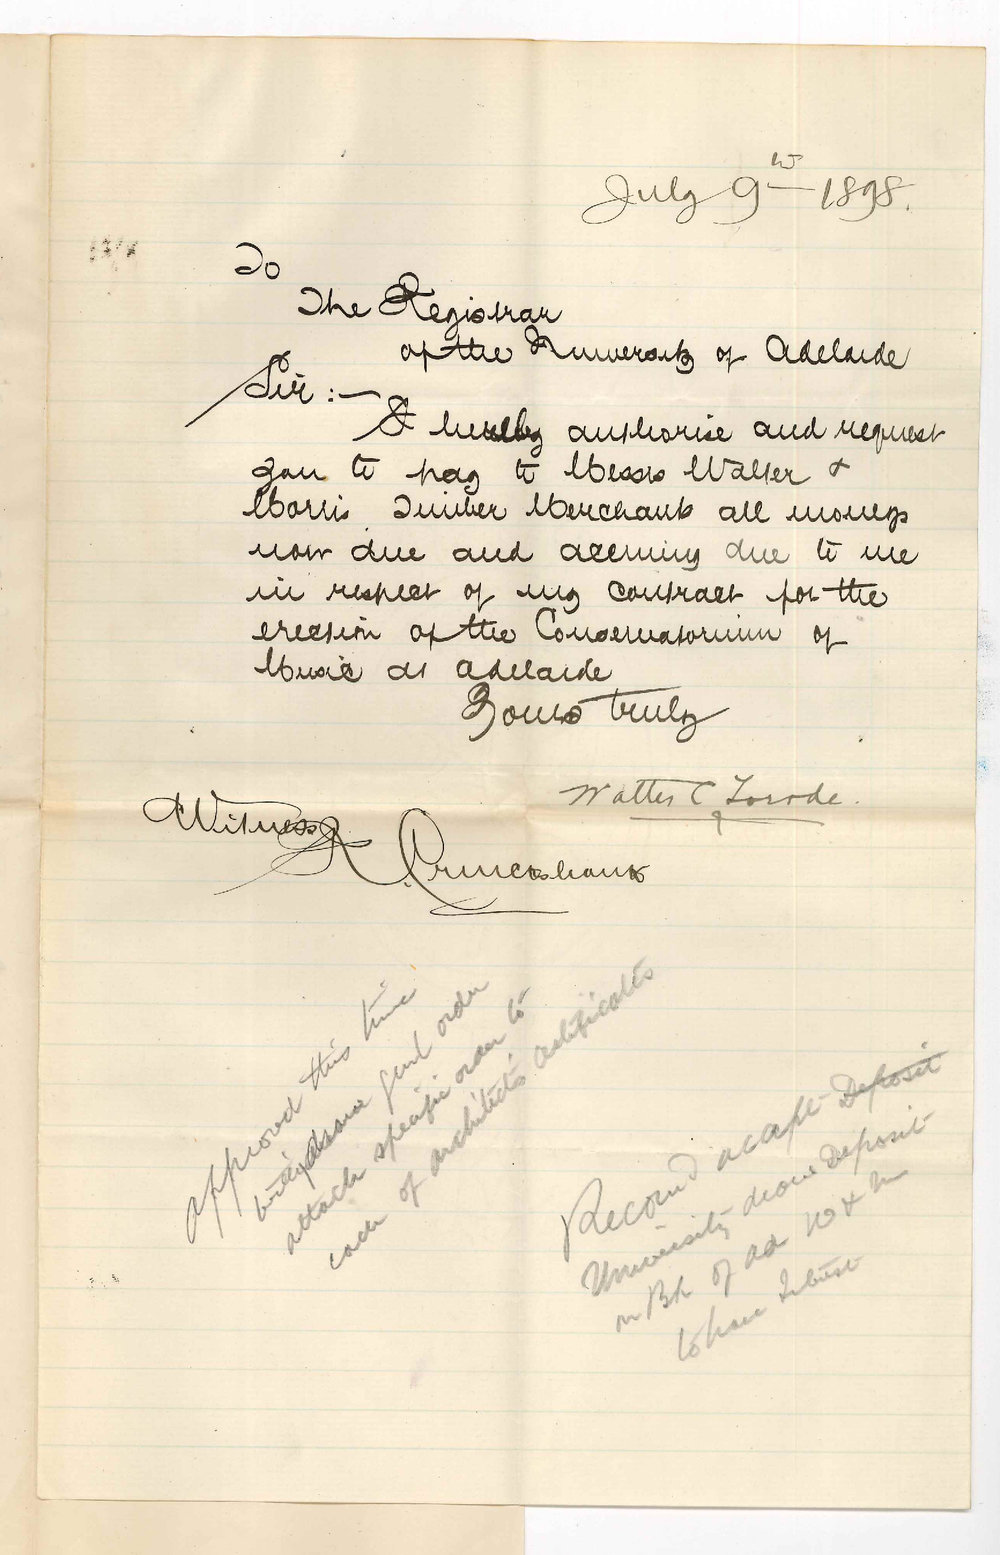 July 9th 1898.
To
The Registrar
of the University of Adelaide
Sir :—
I hereby authorise and request
you to pay to Messrs Walter &
Morris Timber Merchants all moneys
now due and accruing due to me
in respect of my contract for the
erection of the Conservatorium of
Music at Adelaide
Yours truly
Walter C Torode.
Witness
R. Cruickshank
approved this time
order
attach specific order to
each of architect's certificates
Record accept Deposit
University draw Deposit
on Bk of Ad W & M
to have Interest